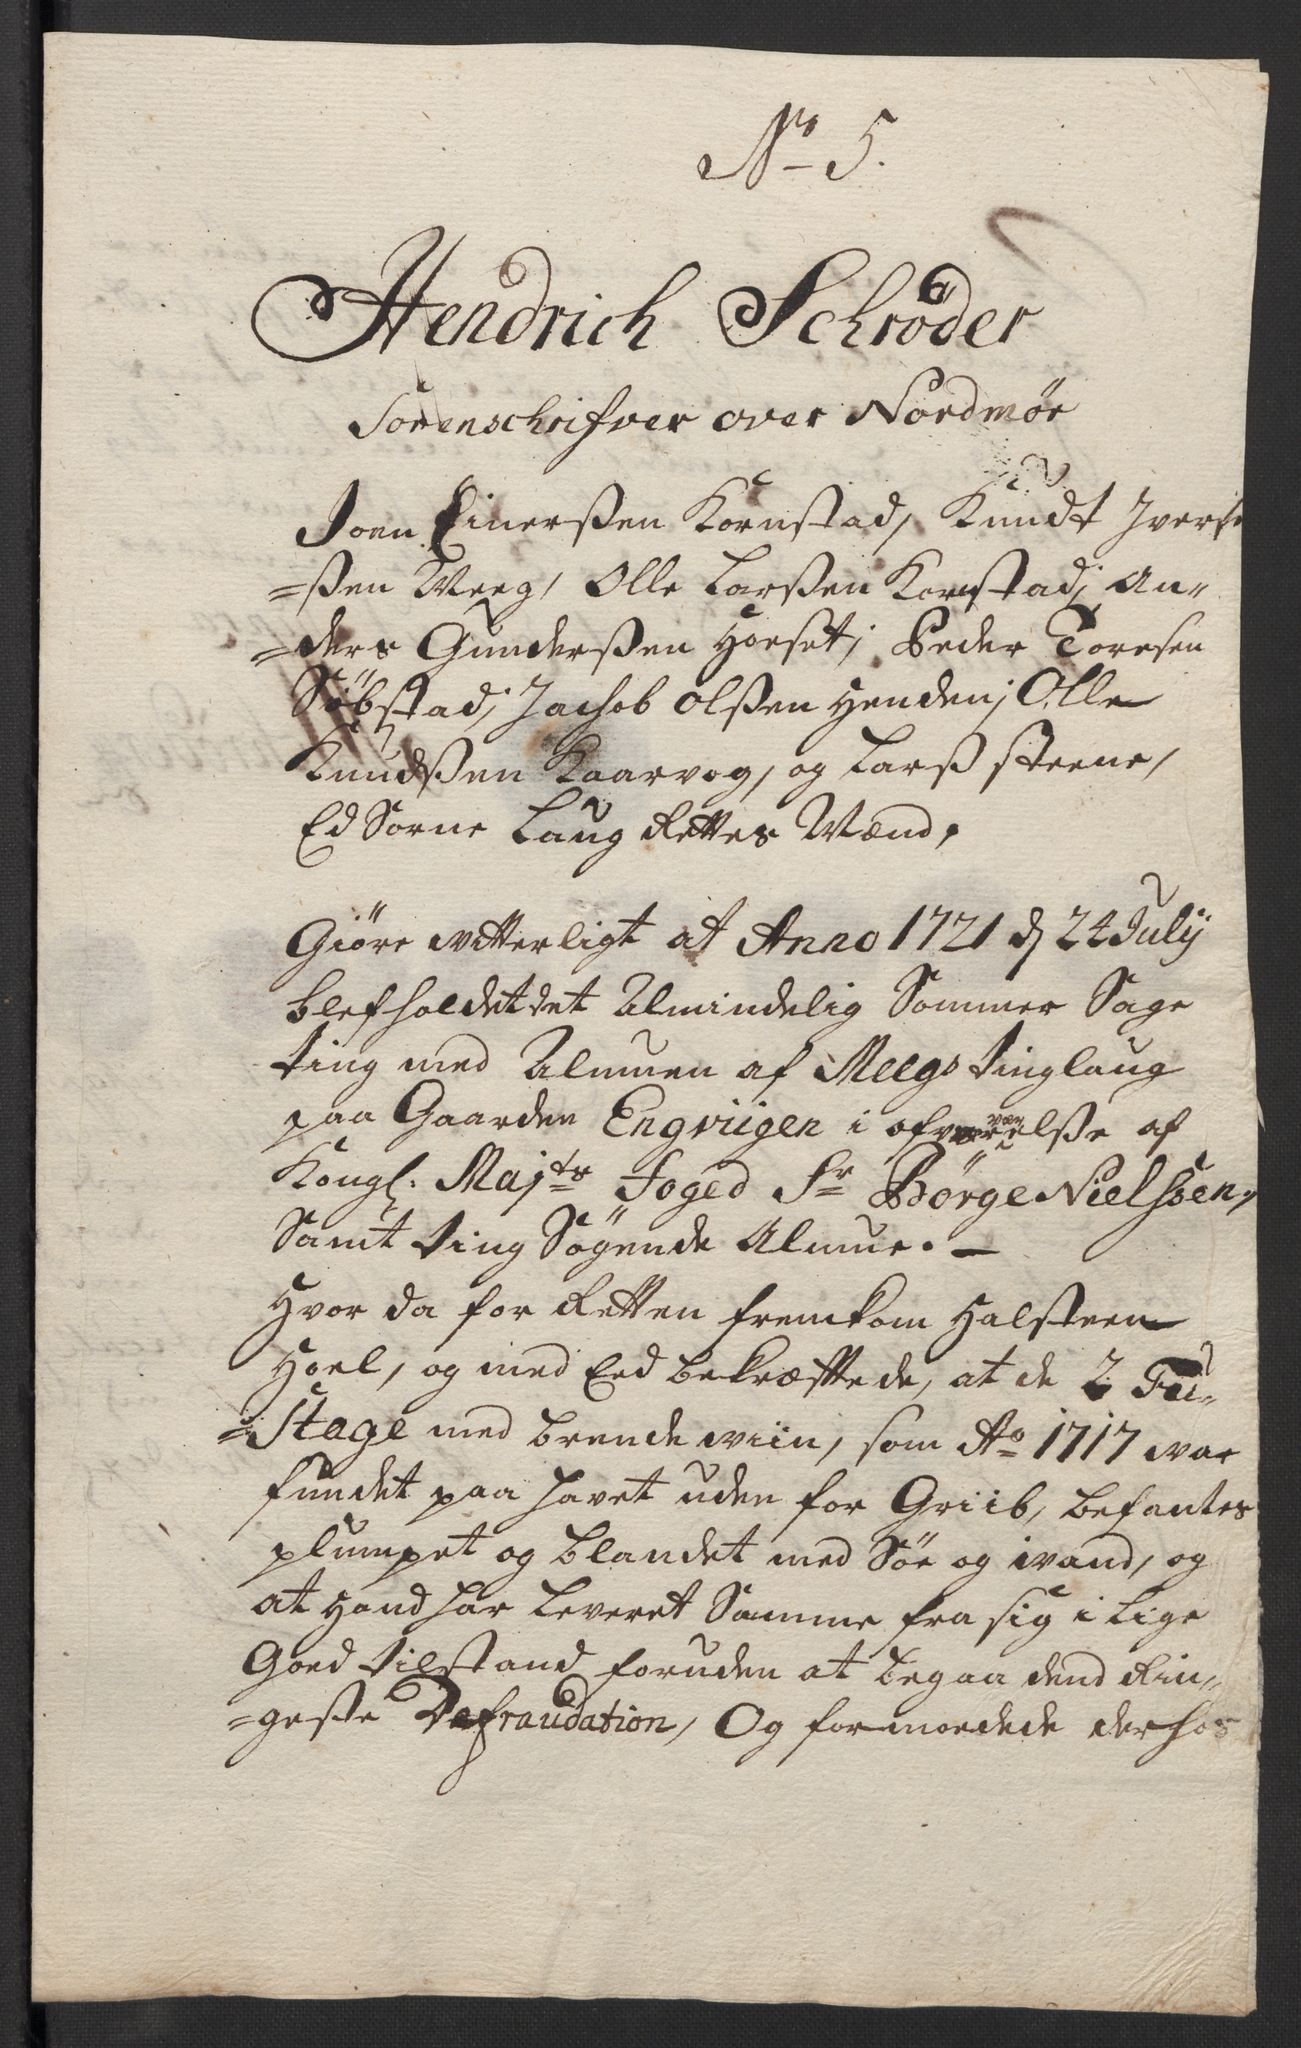 No 5.
Hendrich Schrøder
Sorenschrifver over Nordmør
Joen Einerßen Kornstad, Knudt Iverß
=ßen Weeg, Olle Larßen Kornstad, An,,
=ders Gunderßen Horset, Peder Toresen
Söbstad, Jachob Olßen Henden, Olle
Knudßen Kaarvog, og Larß Steene,
Ed Sorne Laug Rettes Mænd,
Giöre witterligt at Anno 1721 d 24 Julij
blef holdet det Almindelig Sommer Sage
ting med Almuen af Meegs tinglaug
paa Gaarden Engviigen i ofverværelße af
Kongl. Majts foged Sr Börge Nielssen,
Samt ting Sögende Almue. —
Hvor da for Retten fremkom Halsteen
Hoel, og med Eed bekræftede, at de 2 Fu,,
=Stage med brende wiin, som Ao 1717 war
fundet paa havet uden for Griib, befantes
plumpet og blandet med Söe og wand, og
at hand har leveret Samme fra sig i lige
Goed tilstand foruden at begaa dend Rin,,
=geste Defraudation, Og formoedede derhos